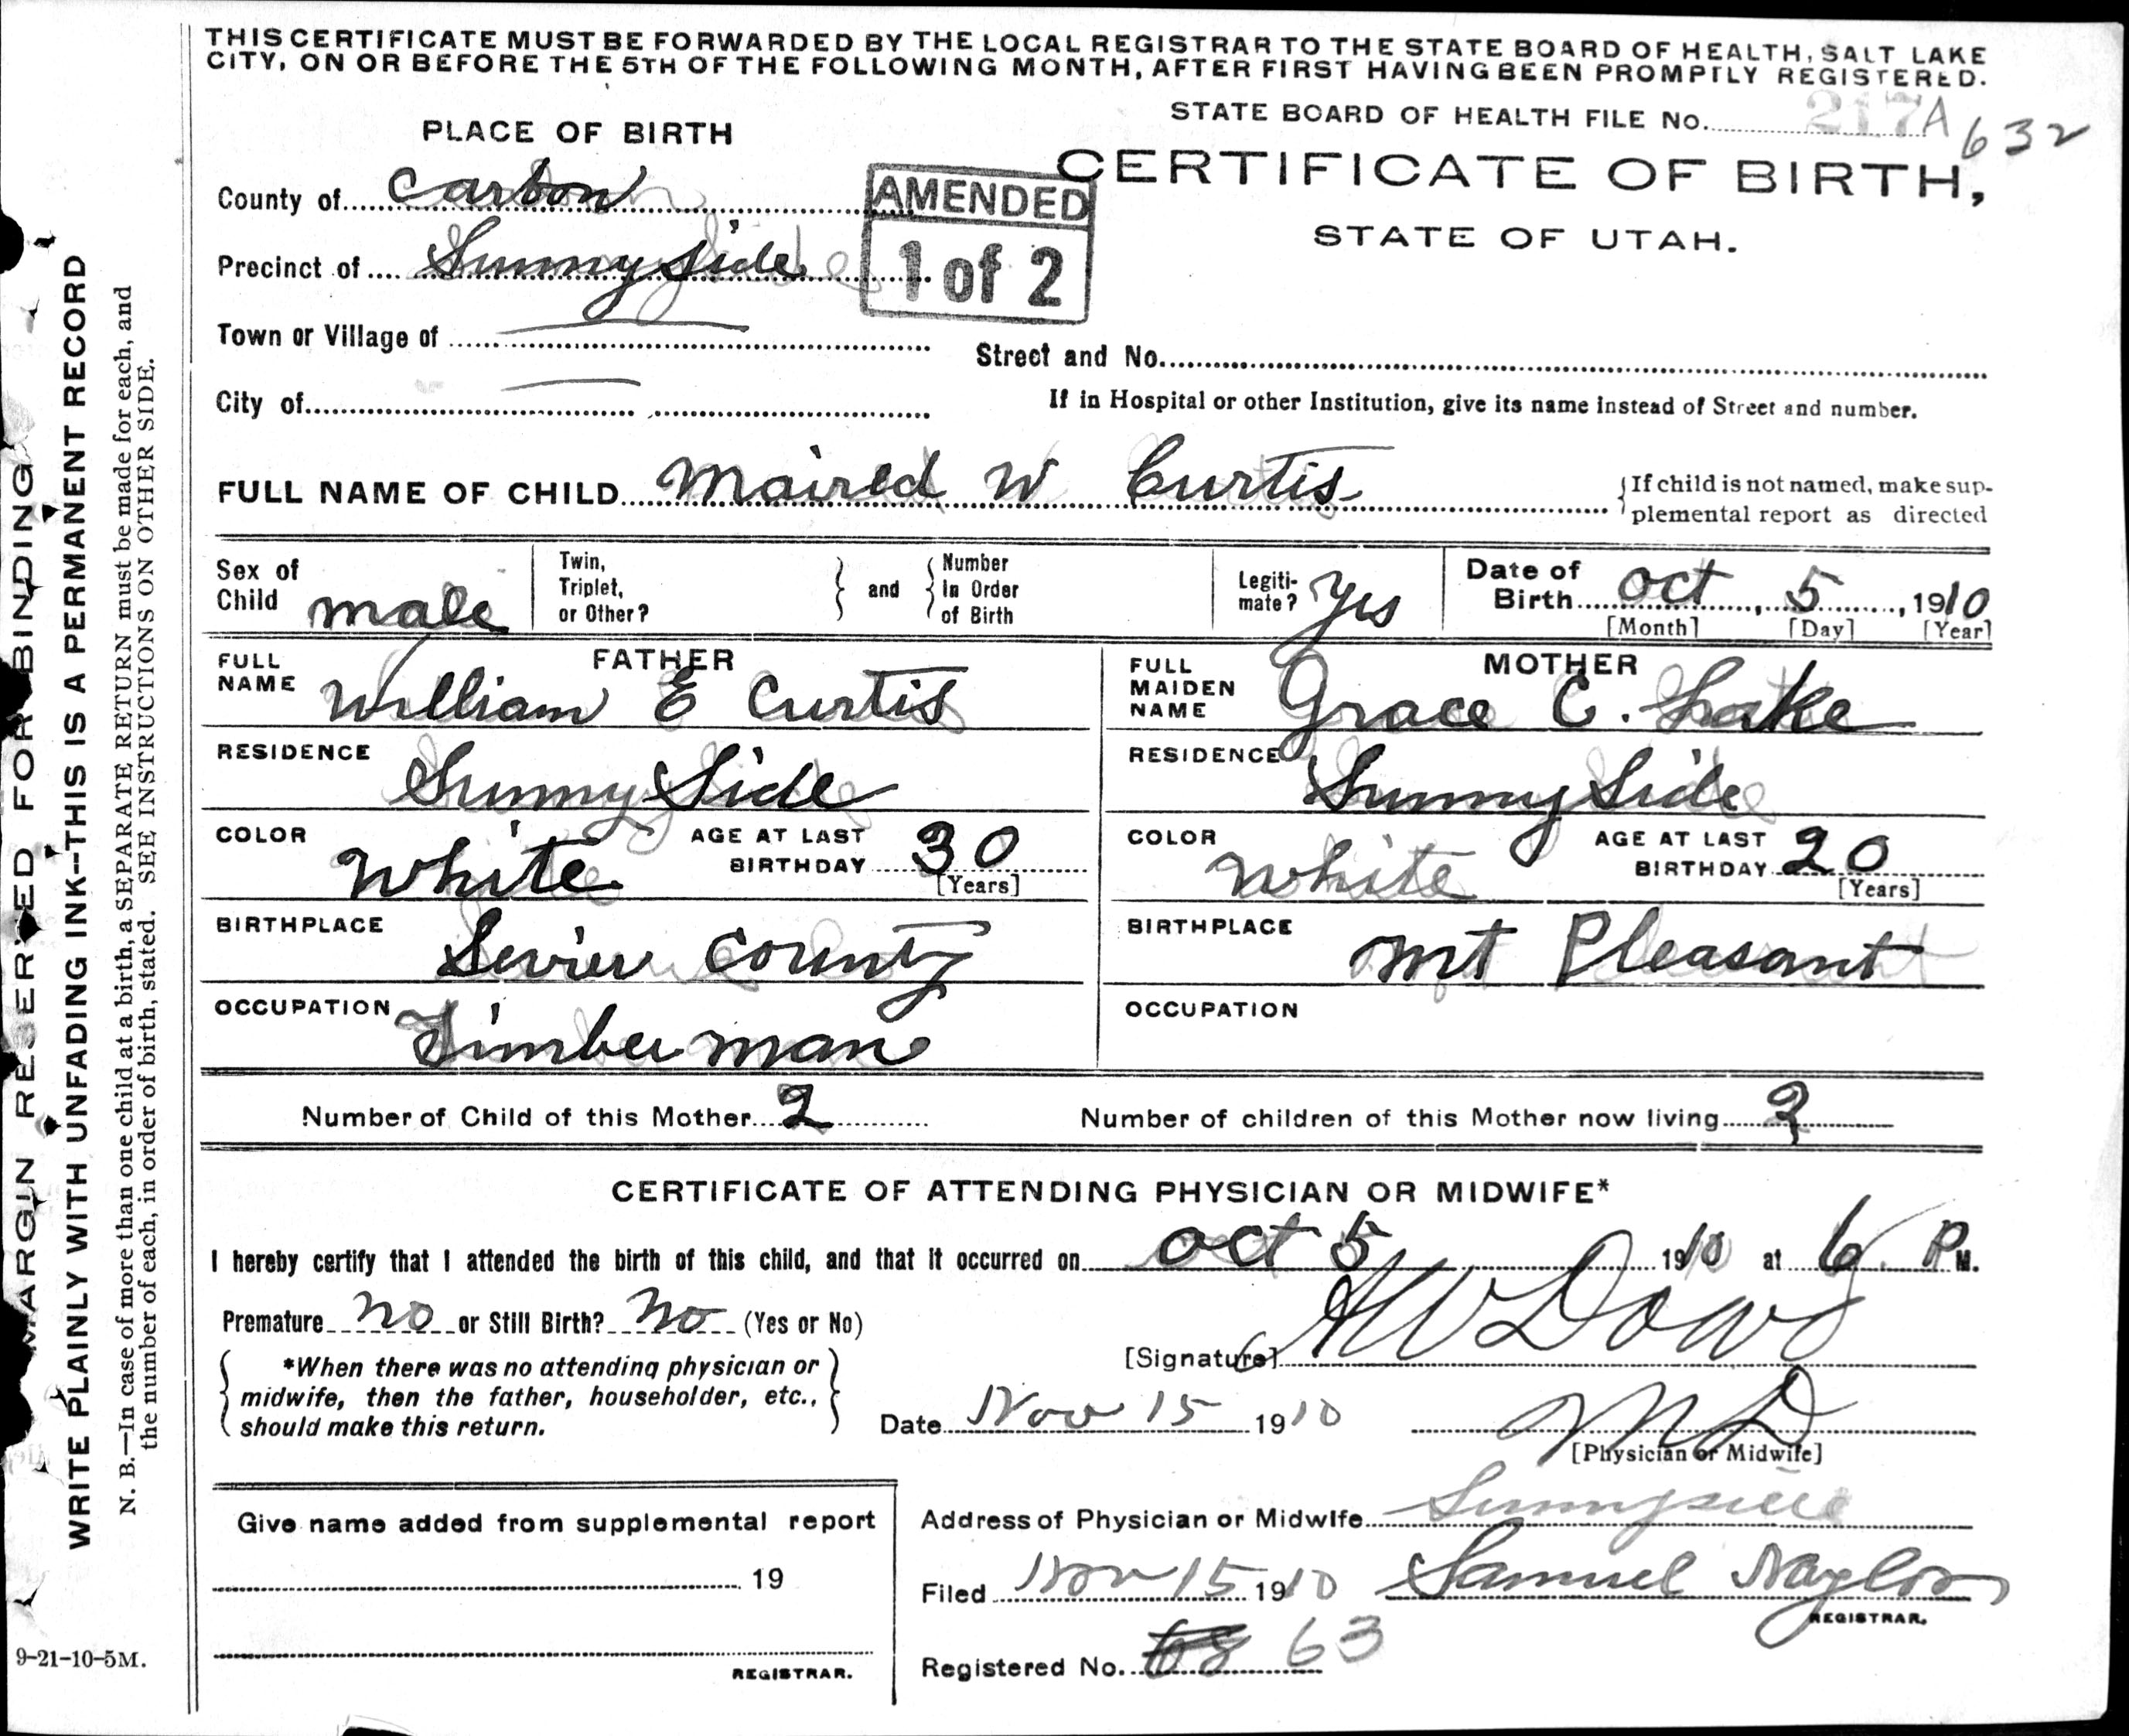 THIS CERTIFICATE MUST BE FORWARDED BY THE LOCAL REGISTRAR TO THE STATE BOARD OF HEALTH, SALT LAKE
CITY, ON OR BEFORE THE 5TH OF THE FOLLOWING MONTH, AFTER FIRST HAVING BEEN PROMPTLY REGISTERED.
STATE BOARD OF HEALTH FILE No. 217A 632
PLACE OF BIRTH
CERTIFICATE OF BIRTH,
STATE OF UTAH.
County of Carbon
AMENDED
1 of 2
Precinct of Sunny Side
Town or Village of
Street and No.
City of
If in Hospital or other Institution, give its name instead of Street and number.
FULL NAME OF CHILD Maired W Curtis
{If child is not named, make sup-
plemental report as directed
Sex of Child male
Twin, Triplet, or Other?
and
Number In Order of Birth
Legiti-mate? Yes
Date of Birth Oct, 5, 1910
[Month] [Day] [Year]
FATHER
FULL NAME William E Curtis
MOTHER
FULL MAIDEN NAME Grace C. Lake
RESIDENCE Sunny Side
RESIDENCE Sunny Side
COLOR White AGE AT LAST BIRTHDAY 30 [Years]
COLOR White AGE AT LAST BIRTHDAY 20 [Years]
BIRTHPLACE Sevier County
BIRTHPLACE Mt Pleasant
OCCUPATION Timberman
OCCUPATION
Number of Child of this Mother 2
Number of children of this Mother now living 2
CERTIFICATE OF ATTENDING PHYSICIAN OR MIDWIFE*
I hereby certify that I attended the birth of this child, and that it occurred on Oct 5 1910 at 6 P M.
Premature No or Still Birth? No (Yes or No)
[Signature] AW Dowd
*When there was no attending physician or
midwife, then the father, householder, etc.,
should make this return.
Date Nov 15 1910
MD
[Physician or Midwife]
Give name added from supplemental report
19
REGISTRAR.
Address of Physician or Midwife Sunnyside
Filed Nov 15 1910 Samuel Naylor
REGISTRAR.
Registered No. 63
MARGIN RESERVED FOR BINDING
WRITE PLAINLY WITH UNFADING INK--THIS IS A PERMANENT RECORD
N. B.—In case of more than one child at a birth, a SEPARATE RETURN must be made for each, and
the number of each, in order of birth, stated. SEE INSTRUCTIONS ON OTHER SIDE.
9-21-10-5M.